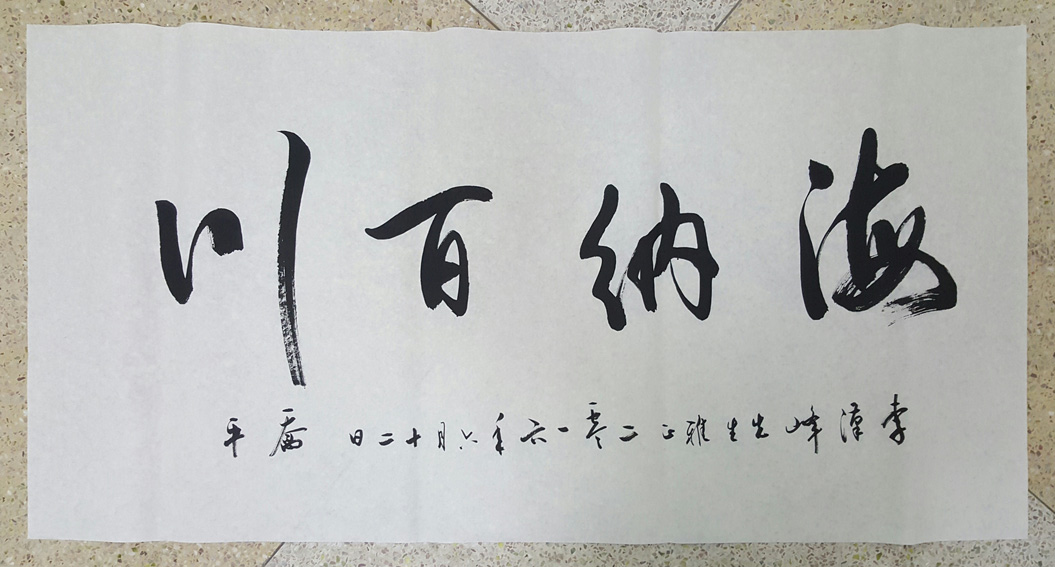 海纳百川
李汉峰先生雅正二零一六年六月十二日 平